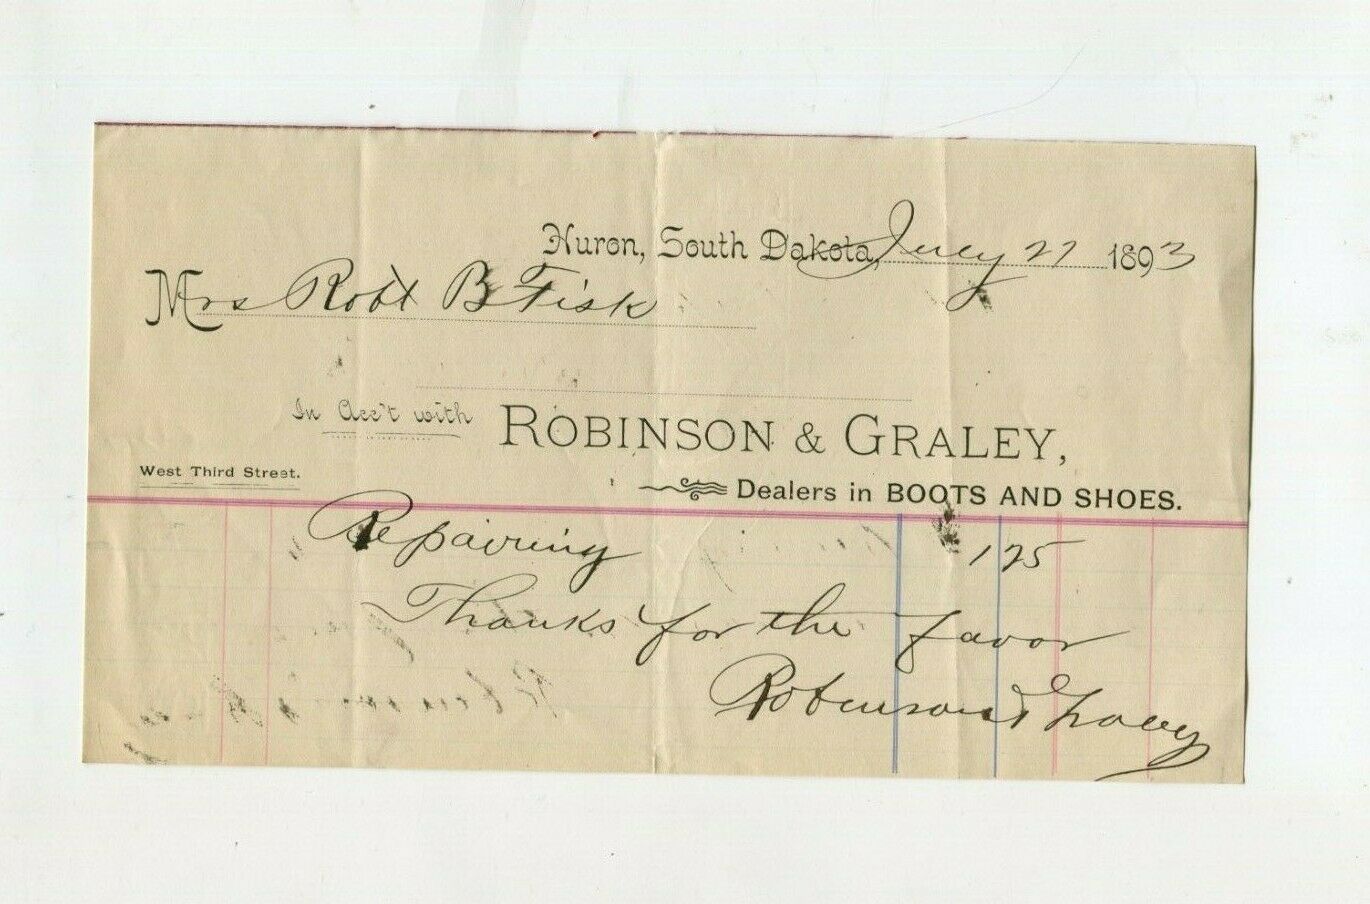 Huron, South Dakota, July 27 1893
Mrs Robt B Fisk
In Acc't with ROBINSON & GRALEY,
West Third Street.
Dealers in BOOTS AND SHOES.
Repairing 1 25
Thanks for the favor
Robinson & Graley